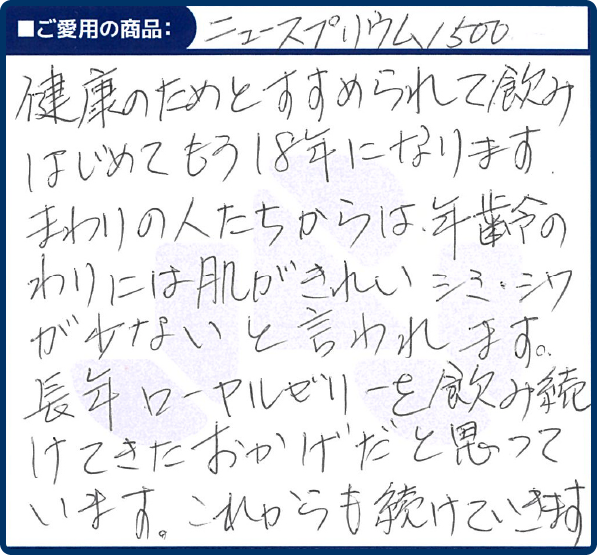 ■ご愛用の商品: ニュースプリウム1500
健康のためとすすめられて飲み
はじめてもう18年になります.
まわりの人たちからは、年齢の
わりには肌がきれい シミ・シワ
が少ないと言われます。
長年ローヤルゼリーを飲み続
けてきたおかげだと思って
います。これからも続けていきます